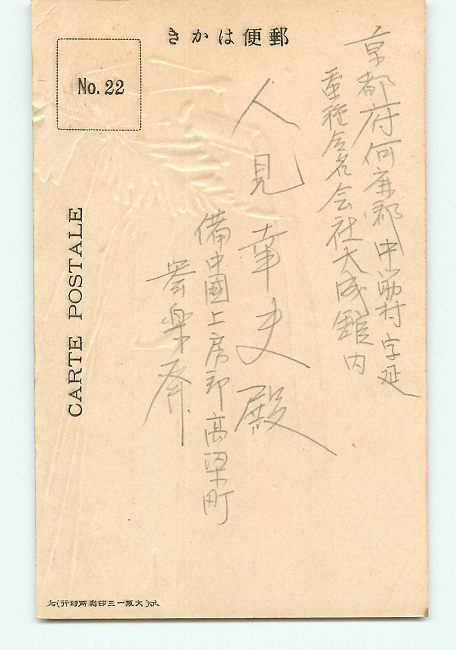 郵便はかき
No. 22
CARTE POSTALE
京都府何鹿郡中筋村字延
蚕種合名会社大成館内
人見幸夫殿
備中國上房郡高梁町